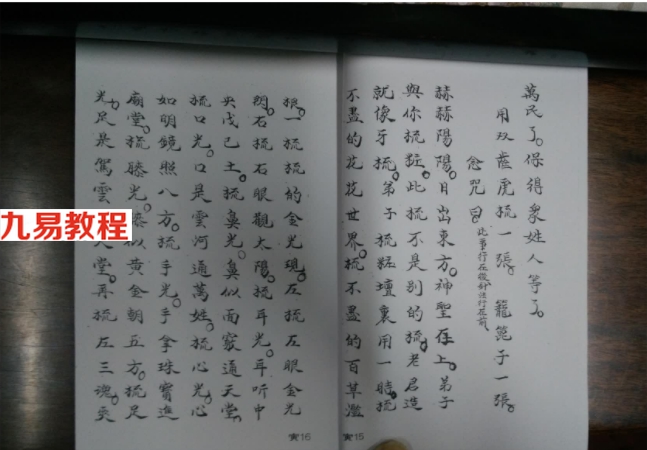 萬民了。保得眾姓人等了。
用双虛虎梳一張。籠篦子一張。
念咒曰
此事行在發卦法行在前
赫赫陽陽。日出東方。神聖在上。弟子
與你梳粧。此梳不是別的梳。老君造
就像牙梳。弟子梳粧壇裏用一時。梳
不盡的花花世界。梳不盡的百草濫
根。一梳梳的金光現。左梳左眼金光
閃。右梳右眼觀太陽。梳耳光。耳听中
央戊己土。梳鼻光。鼻似而竅通天堂。
梳口光。口是雲河通萬姓。梳心光。心
如明鏡照八方。梳手光。手拿珠寶進
廟堂。梳膝光。膝似黃金朝五方。梳足
光。足是駕雲天堂。再梳左三魂。更
16
15
九易教程